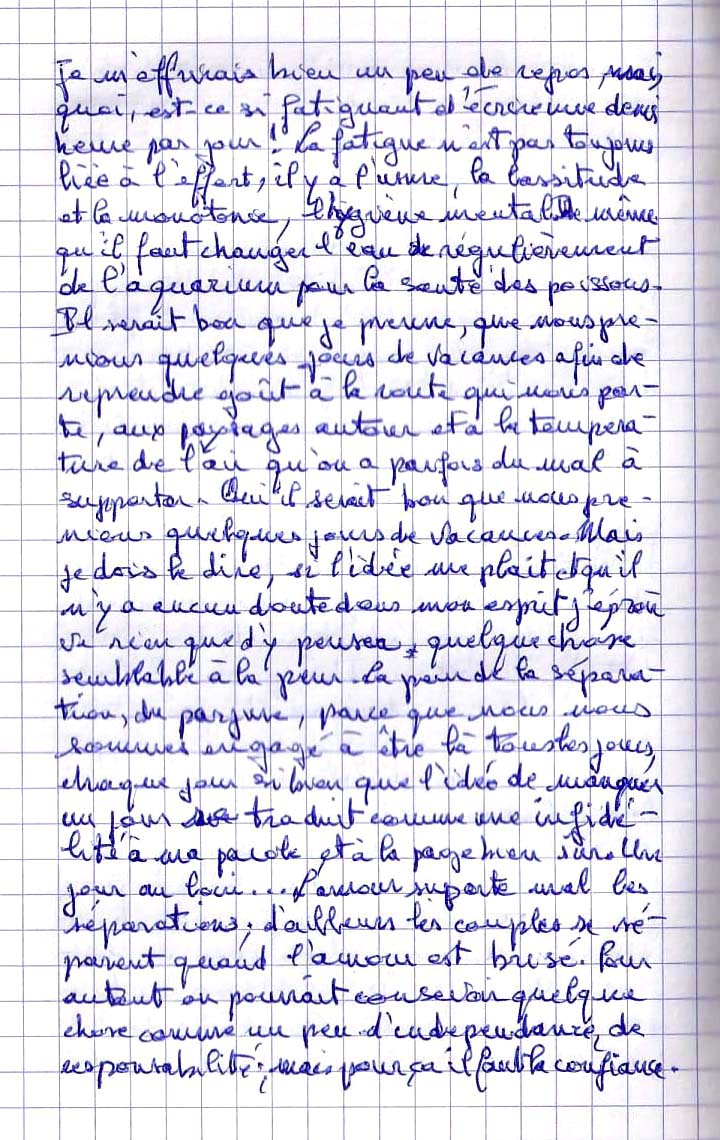 Je m'offrirais bien un peu de repos, mais
quoi, est-ce si fatiguant d'écrire une demi
heure par jour! La fatigue n'est pas toujours
liée à l'effort, il y a l'usure, la lassitude
et la monotonie, l'hygiène mental. De même
qu'il faut changer l'eau régulièrement
de l'aquarium pour la santé des poissons.
Il serait bon que je prenne, que nous pre-
nions quelques jours de vacances afin de
reprendre goût à la route qui nous por-
te, aux paysages autour et à la tempéra-
ture de l'air qu'on a parfois du mal à
supporter. Oui il serait bon que nous pre-
nions quelques jours de vacances. Mais
je dois le dire, si l'idée me plait et qu'il
n'y a aucun doute dans mon esprit j'éprou
ve rien que d'y penser, quelque chose
semblable à la peur. La peur de la sépara-
tion, du parjure, parce que nous nous
sommes engagé à être là tous les jours,
chaque jour si bien que l'idée de manquer
un jour se traduit comme une infidé-
lité à ma parole et à la page bien sûr. Un
jour au loin... L'amour suporte mal les
séparations; d'ailleurs les couples se sé-
parent quand l'amour est brisé. Pour
autant on pourrait conserver quelque
chose comme un peu d'indépendance, de
responsabilité; mais pour ça il faut la confiance.